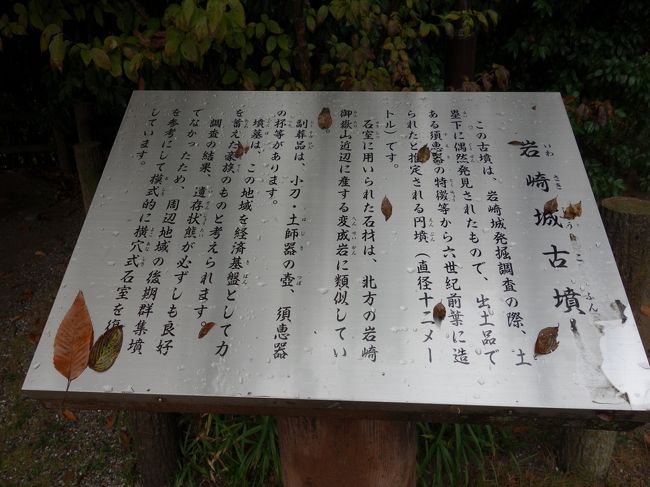 岩崎城古墳
この古墳は、岩崎城発掘調査の際、土
塁下に偶然発見されたもので、出土品で
ある須恵器の特徴等から六世紀前葉に造
られたと推定される円墳（直径十二メー
トル）です。
石室に用いられた石材は、北方の岩崎
御嶽山近辺に産する変成岩に類似してい
ます。
副葬品は、小刀・土師器の壺、須恵器
の杯等があります。
墳墓は、この地域を経済基盤として力
を蓄えた豪族のものと考えられます。
調査の結果、遺存状態が必ずしも良好
でなかったため、周辺地域の後期群集墳
を参考にして模式的に横穴式石室を復
しています。